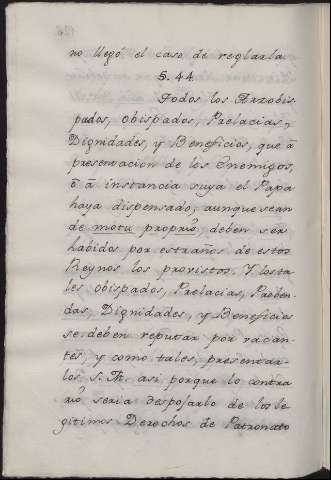 no llegó el caso de reglarla
§. 44
Todos los Arzobis
pados, obispados, Prelacias,
Dignidades, y Beneficios, que à
presentacion de los Enemigos,
ò à instancia suya el Papa
haya dispensado, aunque sean
de motu proprio, deben ser
habidos por estraños de estos
Reynos los provistos. Y los ta
les obispados, Prelacias, Preben
das, Dignidades, y Beneficios
se deben reputar por vacan-
tes, y como tales, presentar-
los S. M. asi porque lo contra
rio seria despojarlo de los le
gitimos Derechos de Patronato